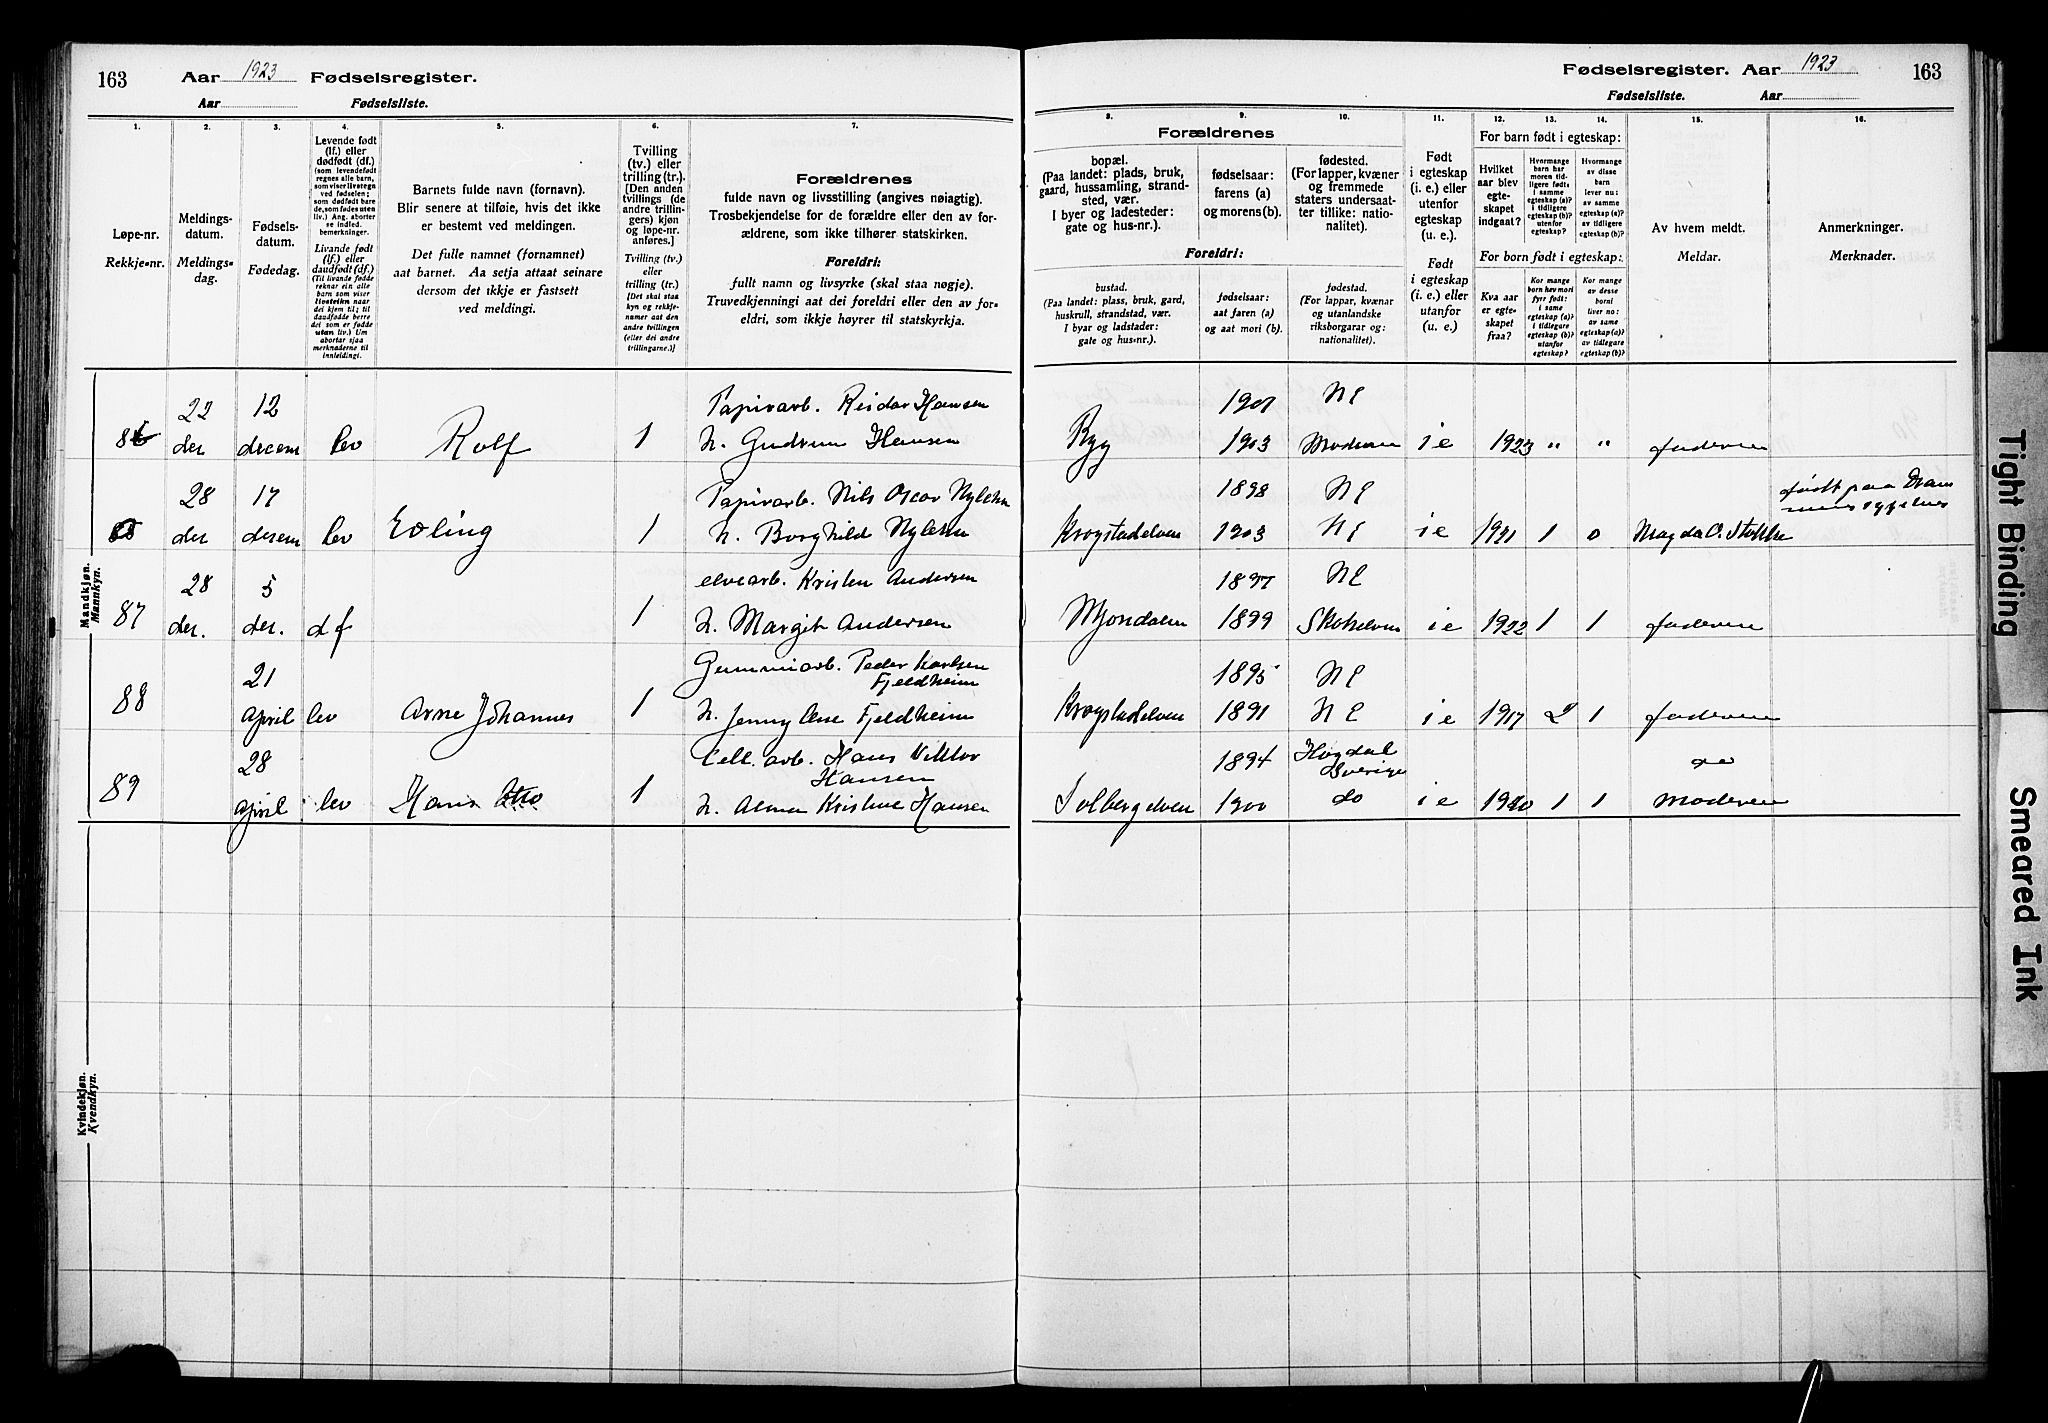 163 Aar 1923 Fødselsregister.
Aar Fødselsliste.
Fødselsregister. Aar 1923 163
Fødselsliste. Aar
1. 2. 3. 4. 5. 6. 7.
8. 9. 10. 11. 12. 13. 14. 15. 16.
Løpe-nr.
Rekkje-nr.
Meldings-
datum.
Meldings-
dag.
Fødsels-
datum.
Fødedag.
Levende født
(lf.) eller
dødfødt (df.)
(som levendefødt
regnes alle barn,
som viser livstegn
ved fødselen;
som dødfødt bare
de, som fødes uten
liv.) Ang. aborter
se indled.
bemerkninger.
Livande født
(lf.) eller
daudfødt (df.)
(Til livande fødde
reknar ein alle
barn som viser
livsteikn naar
dei kjem til; til
daudfødde berre
dei som er fødde
utan liv.) Um
abortar sjaa
merknaderne til
innleidingi.
Barnets fulde navn (fornavn).
Blir senere at tilføie, hvis det ikke
er bestemt ved meldingen.
Det fulle namnet (fornamnet)
aat barnet. Aa setja attaat seinare
dersom det ikkje er fastsett
ved meldingi.
Tvilling
(tv.) eller
trilling (tr.).
[Den anden
tvillings (de
andre trillin-
gers) kjøn
og løpe-nr.
anføres.]
Tvilling (tv.)
eller
trilling (tr.)
[Det skal staa
kyn og rekkje-
numer aat den
andre tvillingen
(eller dei andre
trillingarne.)]
Forældrenes
fulde navn og livsstilling (angives nøiagtig).
Trosbekjendelse for de forældre eller den av for-
ældrene, som ikke tilhører statskirken.
Foreldri:
fullt namn og livsyrke (skal staa nøgje).
Truvedkjenningi aat dei foreldri eller den av for-
eldri, som ikkje høyrer til statskyrkja.
Forældrenes
bopæl.
(Paa landet: plads, bruk,
gaard, hussamling, strand-
sted, vær.
I byer og ladesteder:
gate og hus-nr.).
fødselsaar:
farens (a)
og morens (b).
fødested.
(For lapper, kvæner
og fremmede
staters undersaat-
ter tillike: natio-
nalitet).
Foreldri:
bustad.
(Paa landet: plass, bruk, gard,
huskrull, strandstad, vær.
I byar og ladstader:
gate og hus-nr.).
fødselsaar:
aat faren (a)
og aat mori (b).
fødestad.
(For lappar, kvænar
og utanlandske
riksborgarar og:
nationalitet).
Født
i egteskap
(i. e.) eller
utenfor
egteskap
(u. e.).
Født
i egteskap
(i. e.) eller
utanfor
(u. e.)
For barn født i egteskap:
Hvilket
aar blev
egte-
skapet
indgaat?
Hvormange
barn har
moren tid-
ligere født:
i samme
egteskap (a)?
i tidligere
egteskap (b)?
utenfor
egteskap?
Hvormange
av disse
barn
lever nu:
av samme
egteskap (a)?
av tidligere
egteskap (b)?
For born født i egteskap:
Kva aar
er egte-
skapet
fraa?
Kor mange
born hev mori
fyrr født:
i same
egteskap (a)?
i tidlegare
egteskap (b)?
utanfor
egteskap?
Kor mange
av desse
borni
liver no:
av same
egteskap (a)?
av tidlegare
egteskap (b)?
Av hvem meldt.
Meldar.
Anmerkninger.
Merknader.
Mandkjøn.
Mannkyn.
22 12 Papirarb. Reidar Hansen 1901 N E
86 des decem lev Rolf 1 h. Gudrun Hansen Ryg 1903 Modum i e 1923 " " faderen
28 17 Papirarb. Nils Oscar Nylehn 1898 N E født paa Dram
des desem lev Erling 1 h. Borghild Nylehn Krogstadelven 1903 N E i e 1921 1 0 Magda O. Stokke
28 5 elvearb. Kristen Andersen 1897 N E
87 des. des. df 1 h. Margit Andersen Mjøndalen 1899 Skotselven i e 1922 1 1 faderen
21 Gummiarb. Peder Karlsen 1895 N E
Fjeldheim
88 april lev Arne Johannes 1 h. Jenny Fjeldheim Krogstadelven 1891 N E i e 1917 2 1 faderen
28 Cell. arb. Hans Viktor 1894 Høgdal do
Hansen Sverige
89 april lev Hans Otto 1 h. Alma Kristine Hansen Solbergelven 1900 do i e 1920 1 1 Moderen
Kvindekjøn.
Kvendkyn.
Tight Binding
Smeared Ink